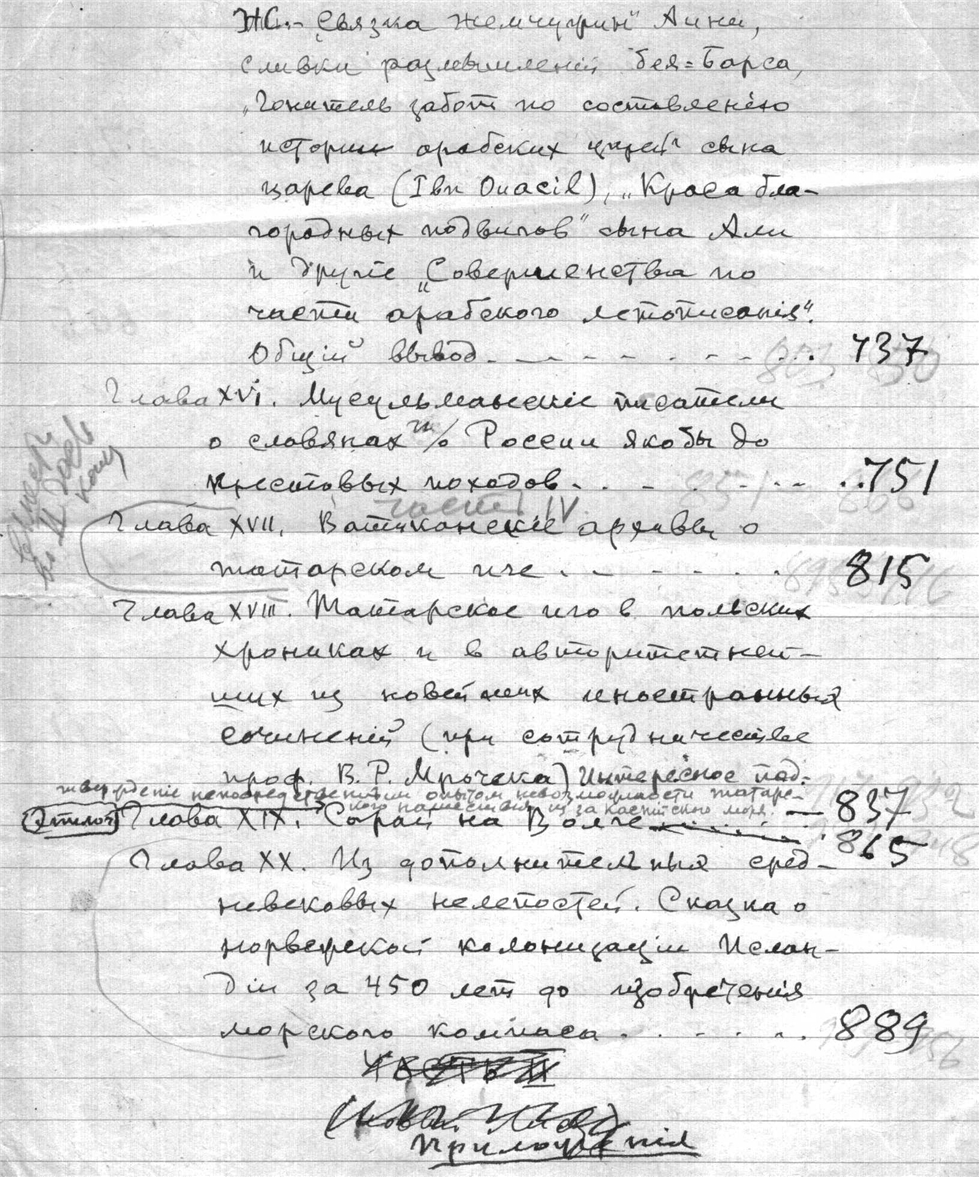 „Связка жемчужин" Аини,
сливки размышлений бея=Барса,
„Гонитель забот по составлению
истории арабских царей" сына
царева (Ibn Ouacil), „Краса бла-
городных подвигов" сына Али
и другие „Совершенства по
части арабского летописания".
Общий вывод. 737
Глава XVI. Мусульманские писатели
о славянах и о России якобы до
крестовых походов. 751
часть IV
Глава XVII. Ватиканские архивы о
татарском иге. 815
Глава XVIII. Татарское иго в польских
хрониках и в авторитетней-
ших из новейших иностранных
сочинений (при сотрудничестве
проф. В. Р. Мрочека) Интересное под-
тверждение непосредственным опытом невозможности татарс-
кого нашествия из за Каспийского моря. — 837
Глава XIX. Сарай на Волге 865
Глава XX. Из дополнительных сред-
невековых нелепостей. Сказка о
норвежской колонизации Ислан-
дии за 450 лет до изобретения
морского компаса. 889
Приложения